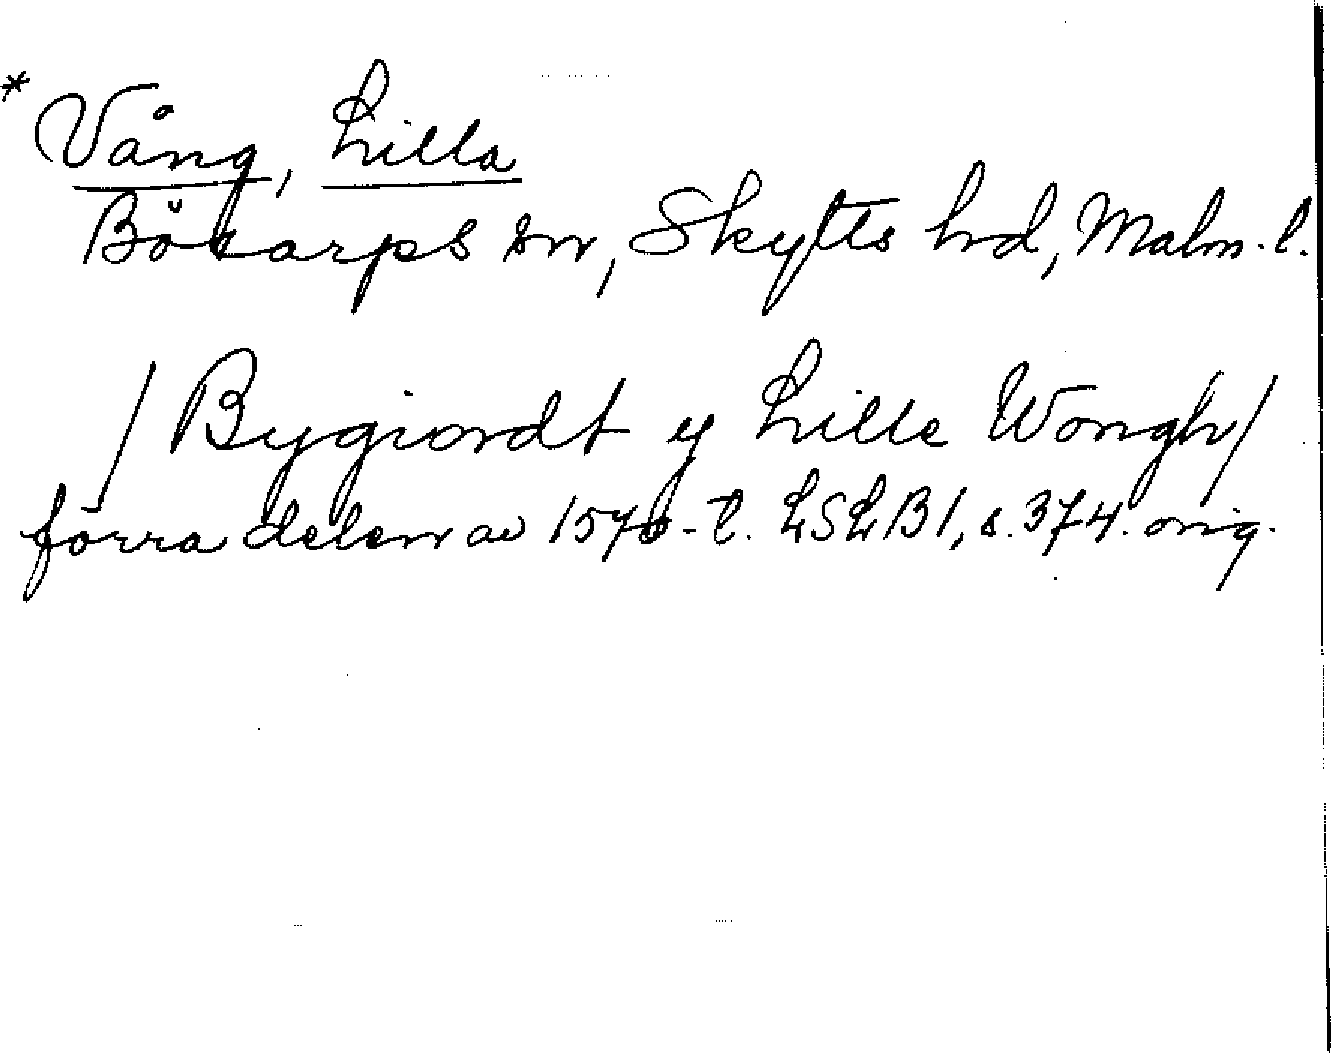 * Vång, Lilla
Bökarps sn, Skytts hd, Malm. l.
/ Bygiordt y Lille Wongh /
förra delen av 1570-t. LSLB1, s. 374. orig.